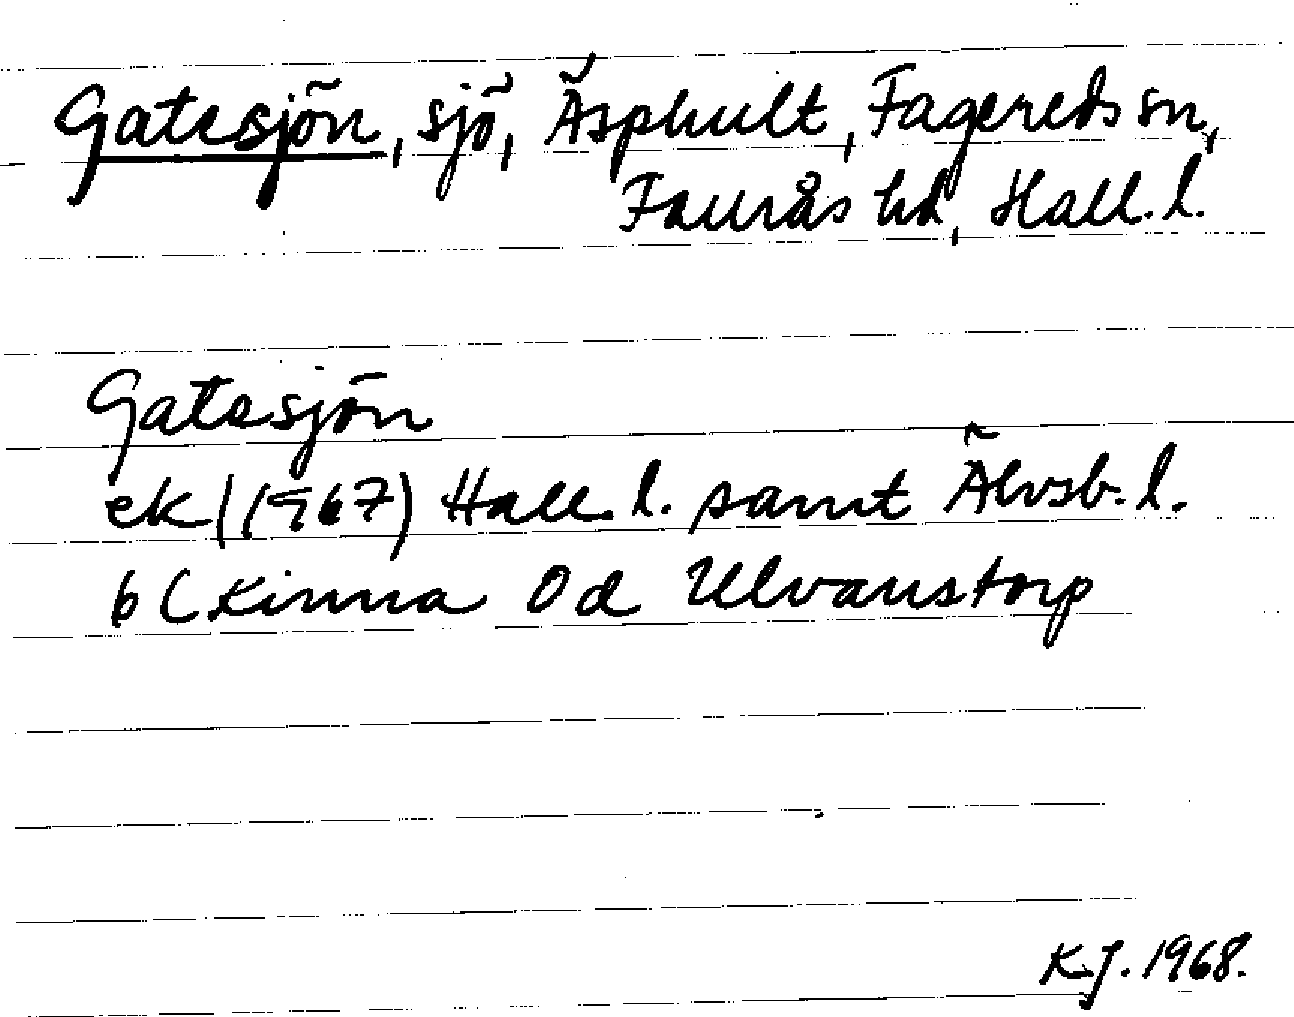 Gatesjön, sjö, Äsphult, Fagereds sn,
Faurås hd, Hall. l.
Gatesjön
ek (1967) Hall. l. samt Älvsb. l.
6 C Kinna Od Ulvanstorp
K.J. 1968.